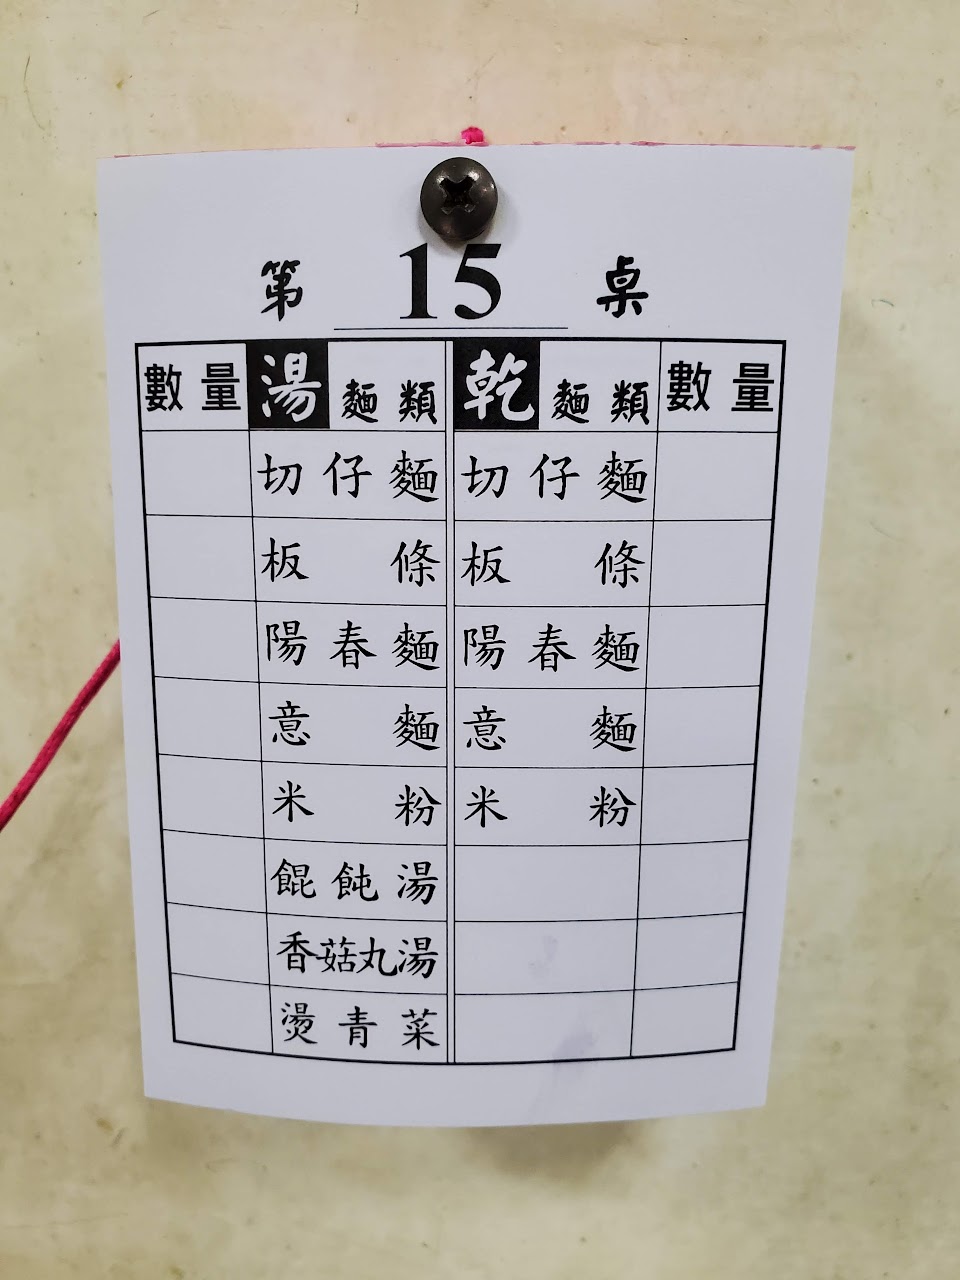 第 15 桌
數量 湯麵類 乾麵類 數量
切仔麵 切仔麵
板條 板條
陽春麵 陽春麵
意麵 意麵
米粉 米粉
餛飩湯
香菇丸湯
燙青菜